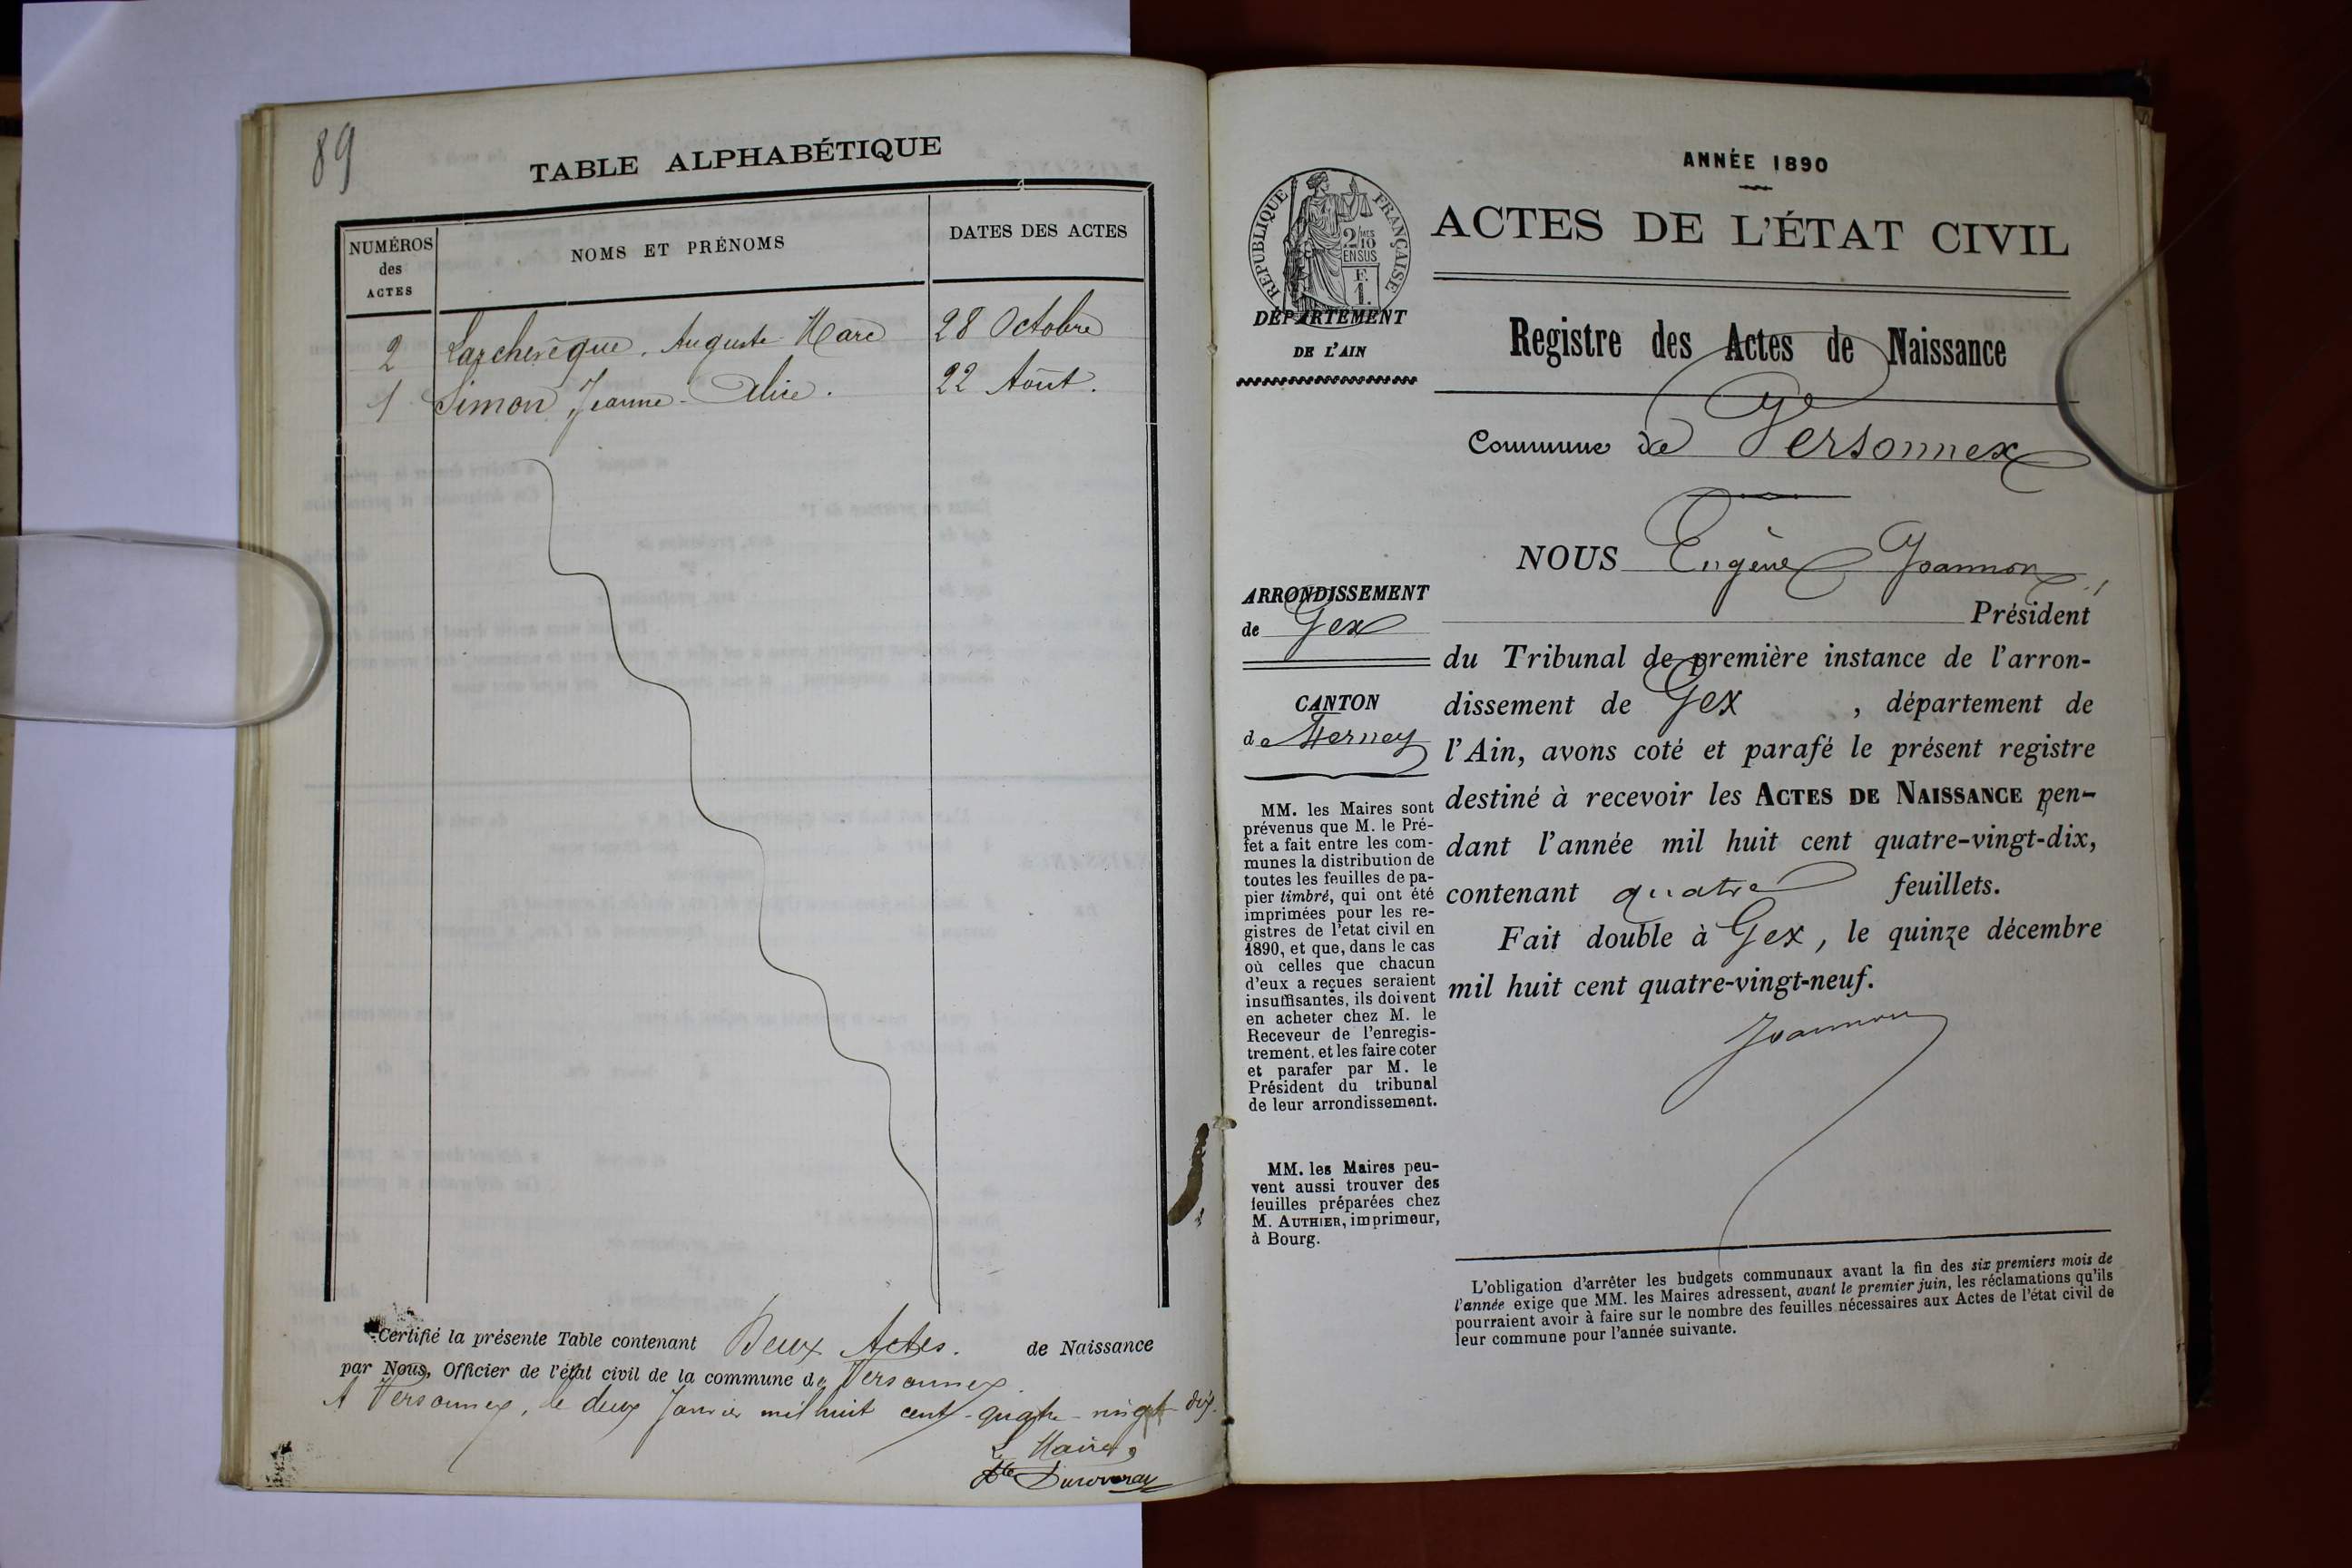 89
TABLE ALPHABÉTIQUE
NUMÉROS
des
ACTES
NOMS ET PRÉNOMS
DATES DES ACTES
2 Larchevêque, Auguste Marc 28 Octobre
1 Simon Jeanne-Alice. 22 Août.
Certifié la présente Table contenant Deux Actes. de Naissance
par Nous, Officier de l'état civil de la commune de Versonnex
A Versonnex, le deux Janvier mil huit cent-quatre-vingt-dix.
Le Maire,
ANNÉE 1890
RÉPUBLIQUE FRANÇAISE
2/MES
10
EN SUS
F.
1.
DÉPARTEMENT
DE L'AIN
ACTES DE L'ÉTAT CIVIL
Registre des Actes de Naissance
Commune de Versonnex
ARRONDISSEMENT
de Gex
CANTON
de Ferney
MM. les Maires sont
prévenus que M. le Pré-
fet a fait entre les com-
munes la distribution de
toutes les feuilles de pa-
pier timbré, qui ont été
imprimées pour les re-
gistres de l'etat civil en
1890, et que, dans le cas
où celles que chacun
d'eux a reçues seraient
insuffisantes, ils doivent
en acheter chez M. le
Receveur de l'enregis-
trement, et les faire coter
et parafer par M. le
Président du tribunal
de leur arrondissement.
MM. les Maires peu-
vent aussi trouver des
feuilles préparées chez
M. AUTHIER, imprimeur,
à Bourg.
NOUS Eugène Joannon,
Président
du Tribunal de première instance de l'arron-
dissement de Gex , département de
l'Ain, avons coté et parafé le présent registre
destiné à recevoir les ACTES DE NAISSANCE pen-
dant l'année mil huit cent quatre-vingt-dix,
contenant quatre feuillets.
Fait double à Gex, le quinze décembre
mil huit cent quatre-vingt-neuf.
Joannon
L'obligation d'arrêter les budgets communaux avant la fin des six premiers mois de
l'année exige que MM. les Maires adressent, avant le premier juin, les réclamations qu'ils
pourraient avoir à faire sur le nombre des feuilles nécessaires aux Actes de l'état civil de
leur commune pour l'année suivante.